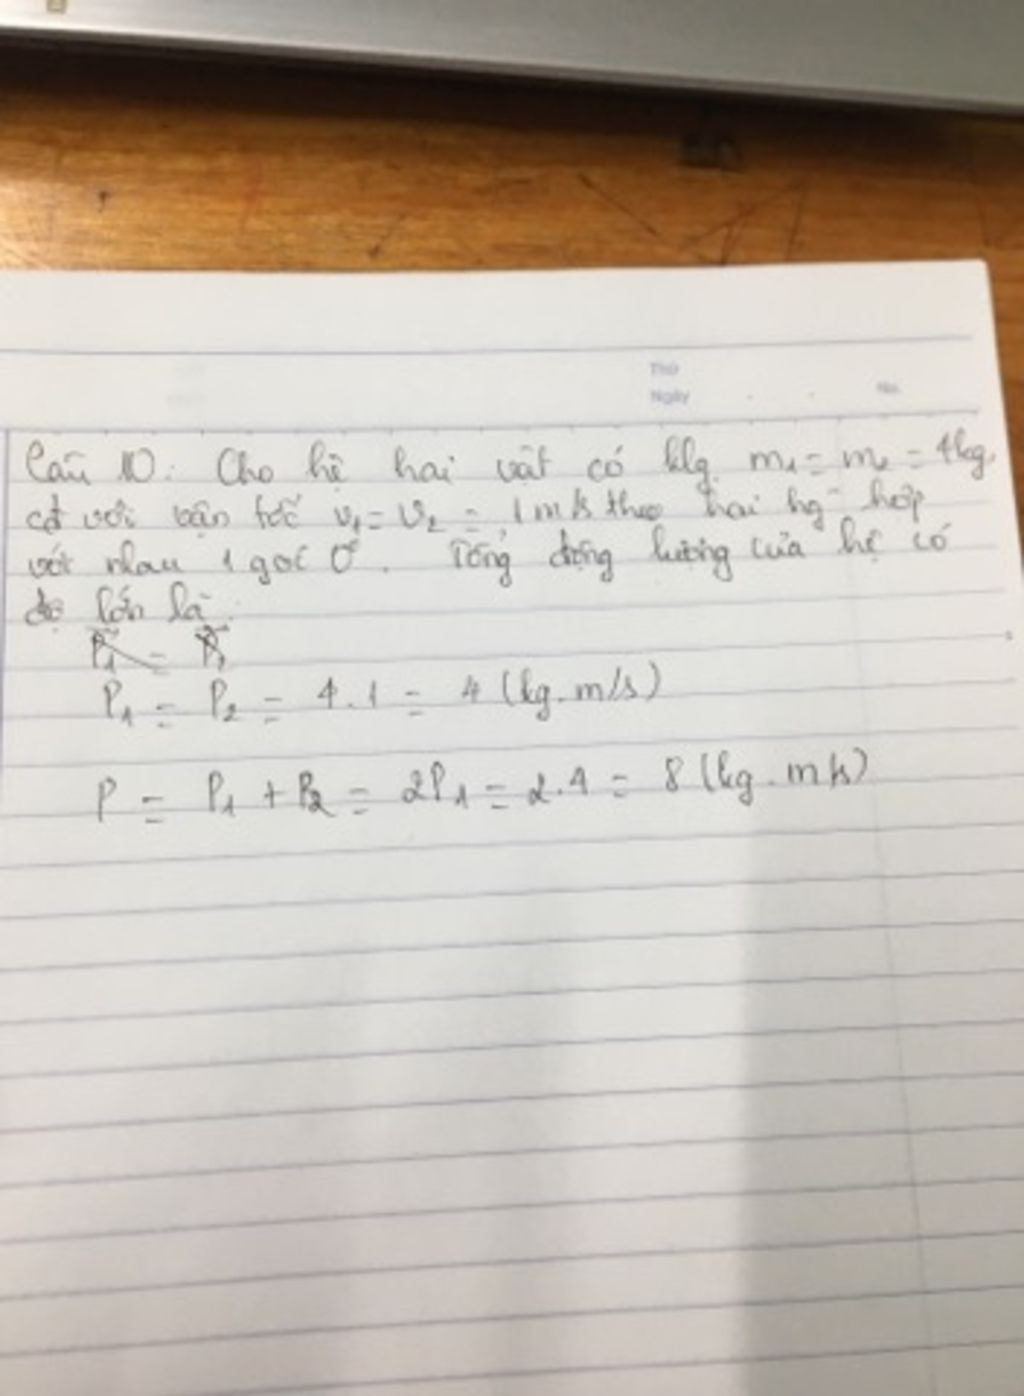 Thứ
Ngày
No.
Câu 10: Cho hệ hai vật có klg m₁ = m₂ = 4kg,
cđ với vận tốc v₁ = v₂ = 1 m/s theo hai hg hợp
với nhau 1 góc 0°. Tổng động lượng của hệ có
độ lớn là:
P₁ = P₂
P₁ = P₂ = 4.1 = 4 (kg.m/s)
P = P₁ + P₂ = 2P₁ = 2.4 = 8 (kg.m/s)